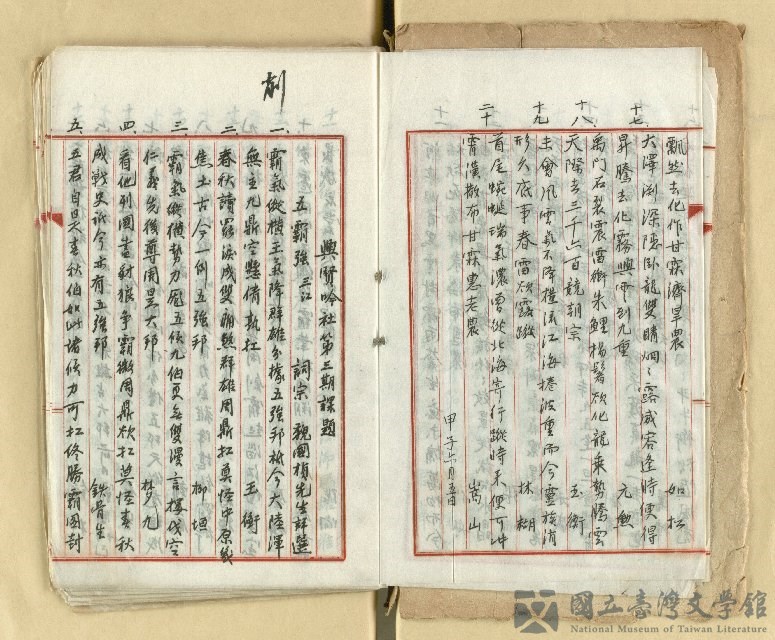 飄然去化作甘霖濟旱農
如松
十七、
大澤淵深隱臥龍雙睛烱〻露威容逢時便得
昇騰去化霧興雲到九重
元勲
十八、
禹門石裂震雷衝朱鯉揚鬐欲化龍乘勢騰雲
天際去三千六百競朝宗
玉衡
十九、
士會風雲氣不降橫流江海捲波重而今靈族消
形久底事春雷欲露蹤
林糊
二十
首尾蜿蜒瑞氣濃曾從北海寄行蹤時來便可冲
霄漢散布甘霖惠老農
嵩山
甲子六月五日
創
興賢吟社第三期課題
五霸強 三江 詞宗 魏國楨先生評選
一、
霸氣縱橫王氣降群雄分據五強邦祇今大陸渾
無主九鼎空懸倩孰扛
玉衡
二、
春秋讀罷淚成雙蹦
群雄周鼎扛莫怪中原成
焦土古今一例五強邦
柳垣
三、
霸氣縱橫勢力龐五侯九伯更無雙漫言摟伐空
仁義先後尊周是大邦
夢九
四、
看他列國盡豺狼爭霸衰周鼎欲扛莫怪春秋
成戰史祇今亦有五強邦
鉄骨生
五、
五君自是春秋伯如此諸侯力可扛終勝霸圖封
國立臺灣文學館
National Museum of Taiwan Literature